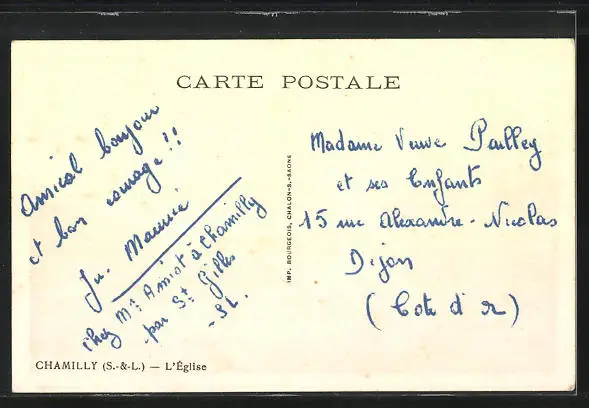 CARTE POSTALE
Amical bonjour
et bon courage !!
Maurice
chez Mr Amiot à Chamilly
par St Gilles
- SL.
IMP. BOURGEOIS, CHALON-S.-SAONE
Madame Veuve Pailley
et ses Enfants
15 rue Alexandre-Nicolas
Dijon
(Cote d'or)
CHAMILLY (S.-&-L.) — L'Église